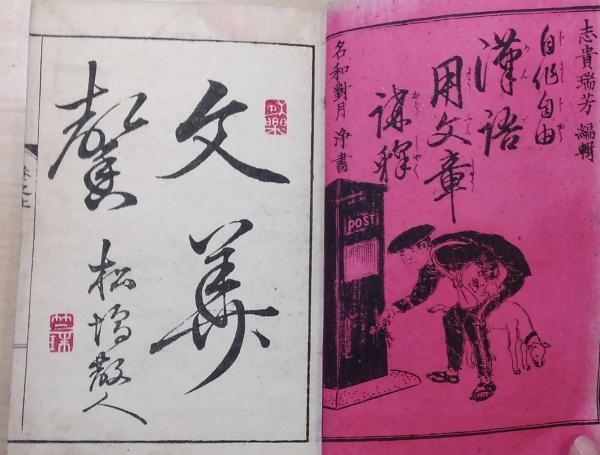 志貴瑞芳 編輯
自作自由
漢語
用文章
講釋
名和對月 浄書
POST
文華
馨
松塢散人